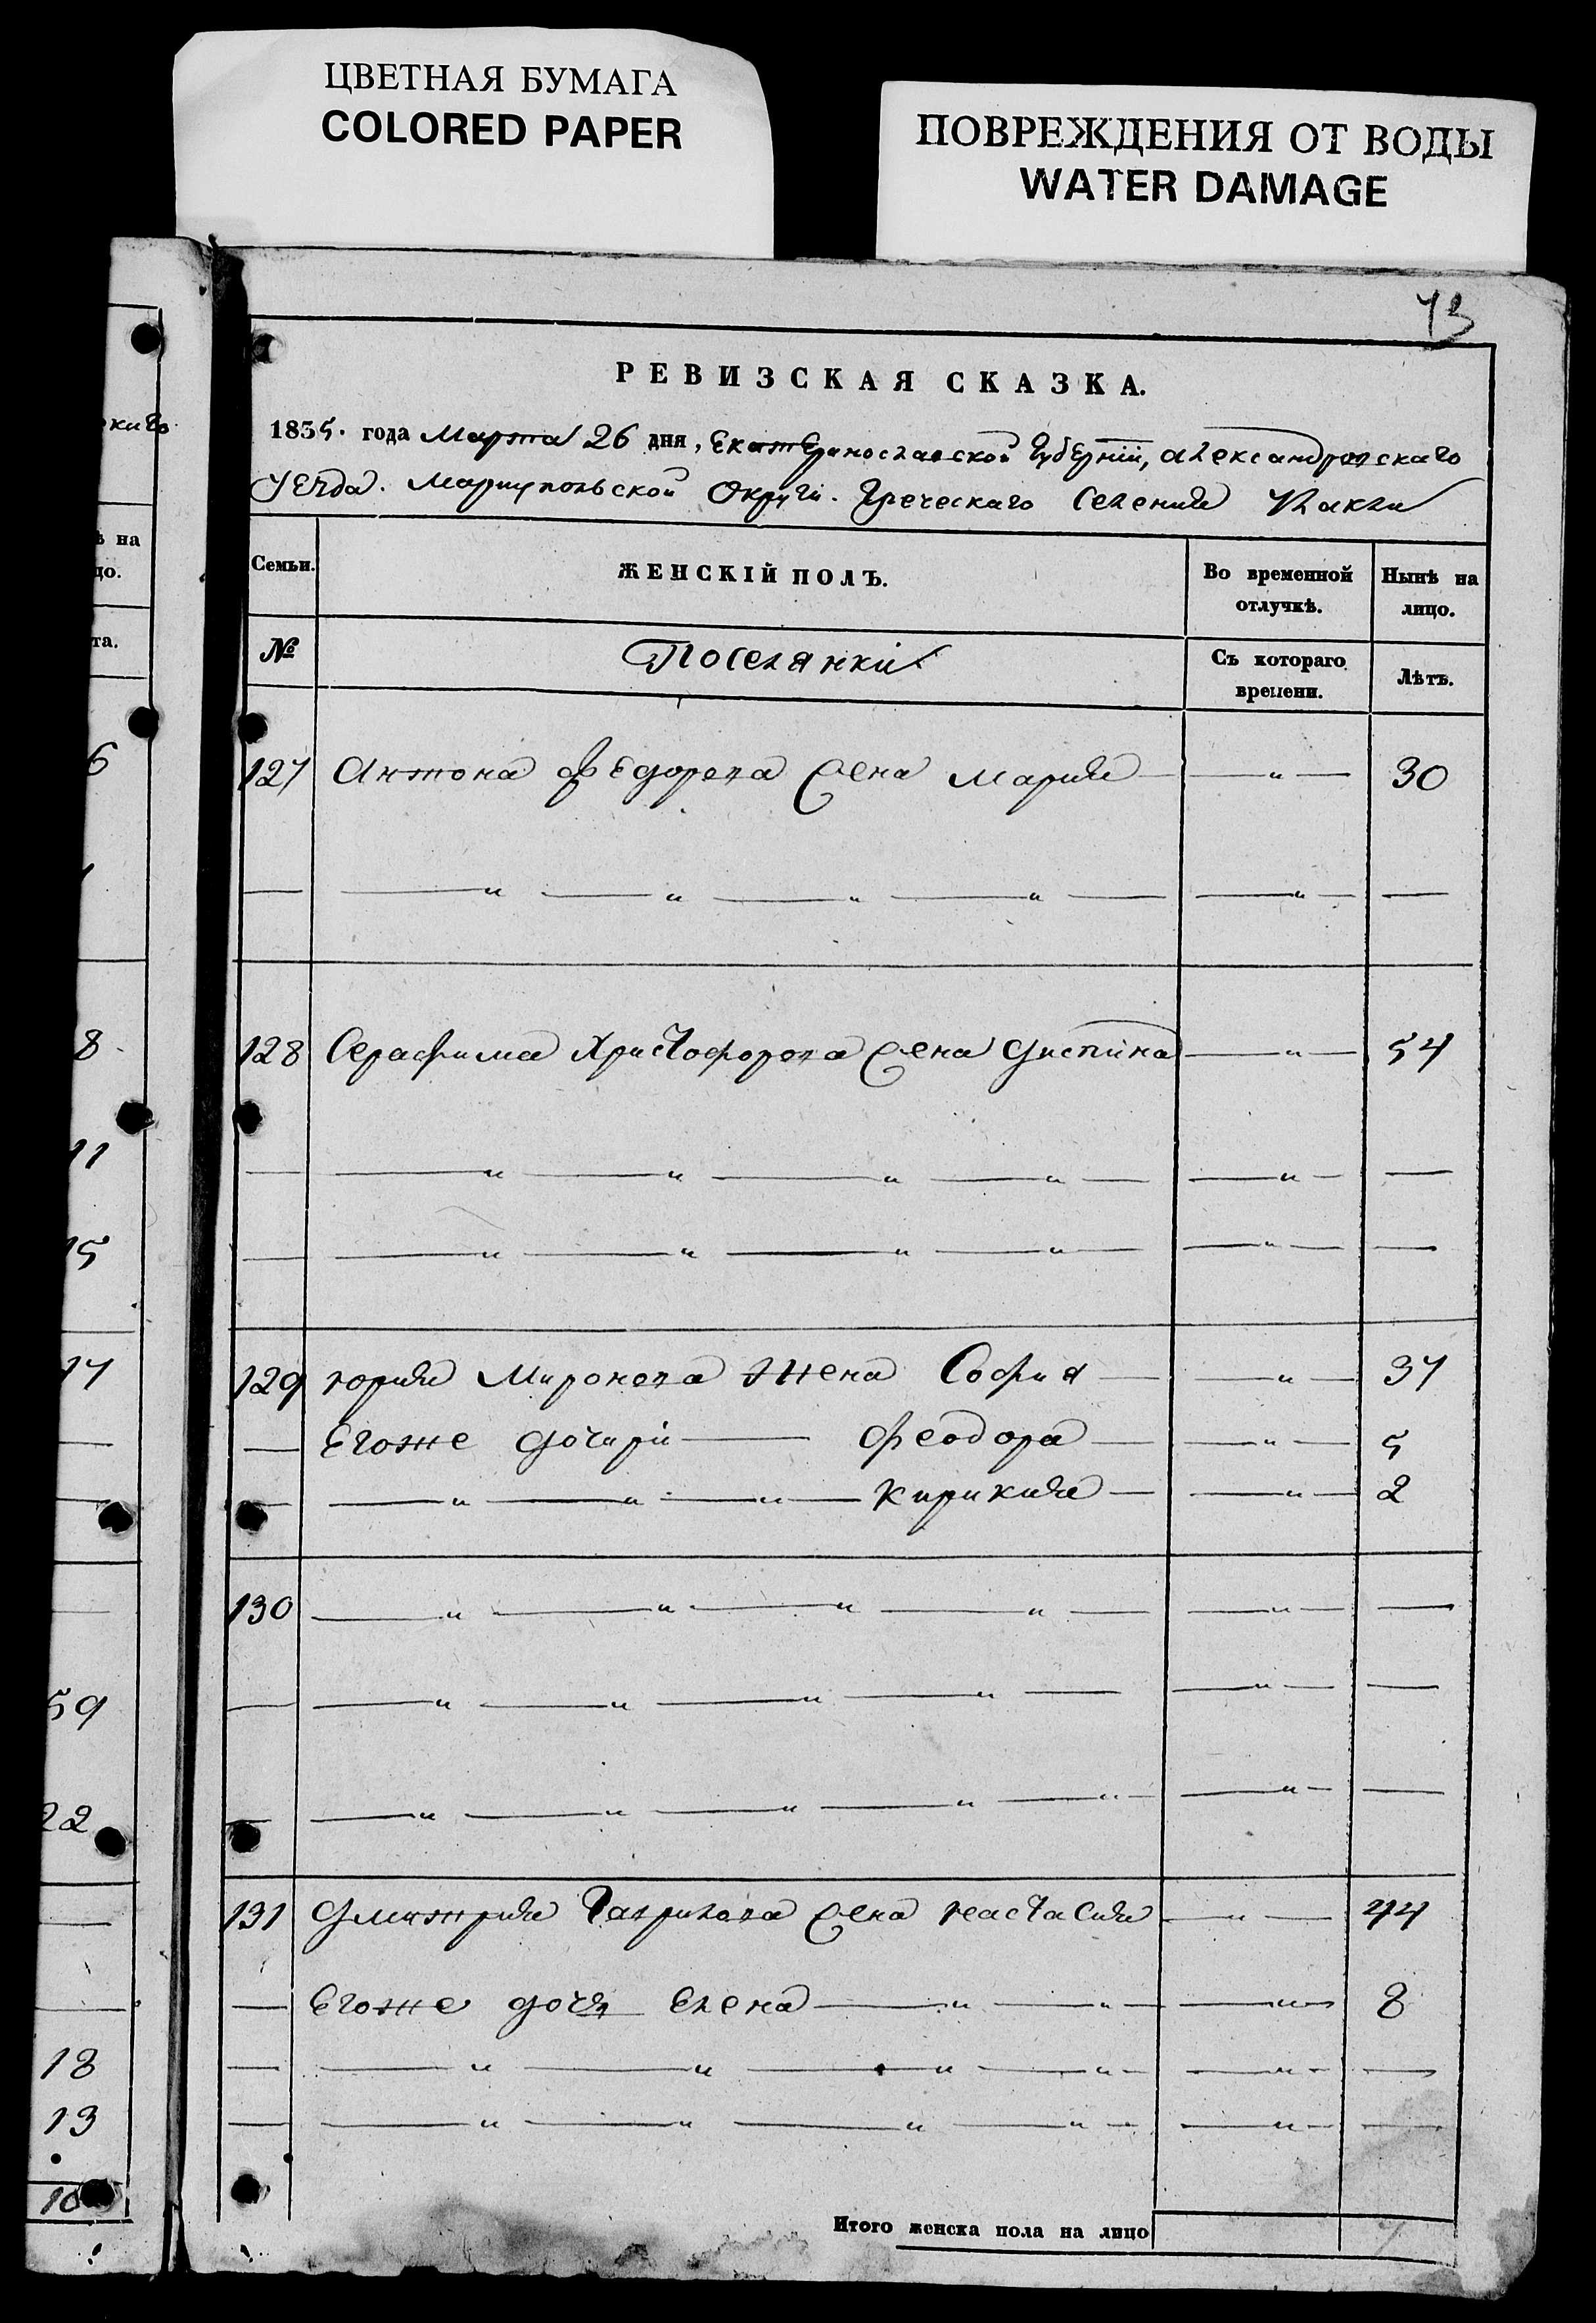 ЦВЕТНАЯ БУМАГА
COLORED PAPER
ПОВРЕЖДЕНИЯ ОТ ВОДЫ
WATER DAMAGE
73
РЕВИЗСКАЯ СКАЗКА.
1835. года Марта 26 дня, Екатеринославской Губерніи, александровскаго
уезда. Мариупольской Округи. Греческаго Селения
Семьи. ЖЕНСКІЙ ПОЛЪ. Во временной отлучкѣ. Нынѣ на лицо.
№ Поселянки Съ котораго времени. Лѣтъ.
127 Антона Федорова жена Мария — " — 30
128 Серафима Христофорова жена — " — 54
129 юрия Миронова жена София — " — 37
Егоже дочери — Феодора — " — 5
— " — " — " — Кирикия — " — 2
130 — " — " — " — " — " — —
131 Дмитрия Гаврилова жена настасия — " — 44
Егоже дочь Елена — " — " — " — 8
Итого женска пола на лицо 7
ѣ на
цо.
та.
6
8
11
15
17
59
22
18
13